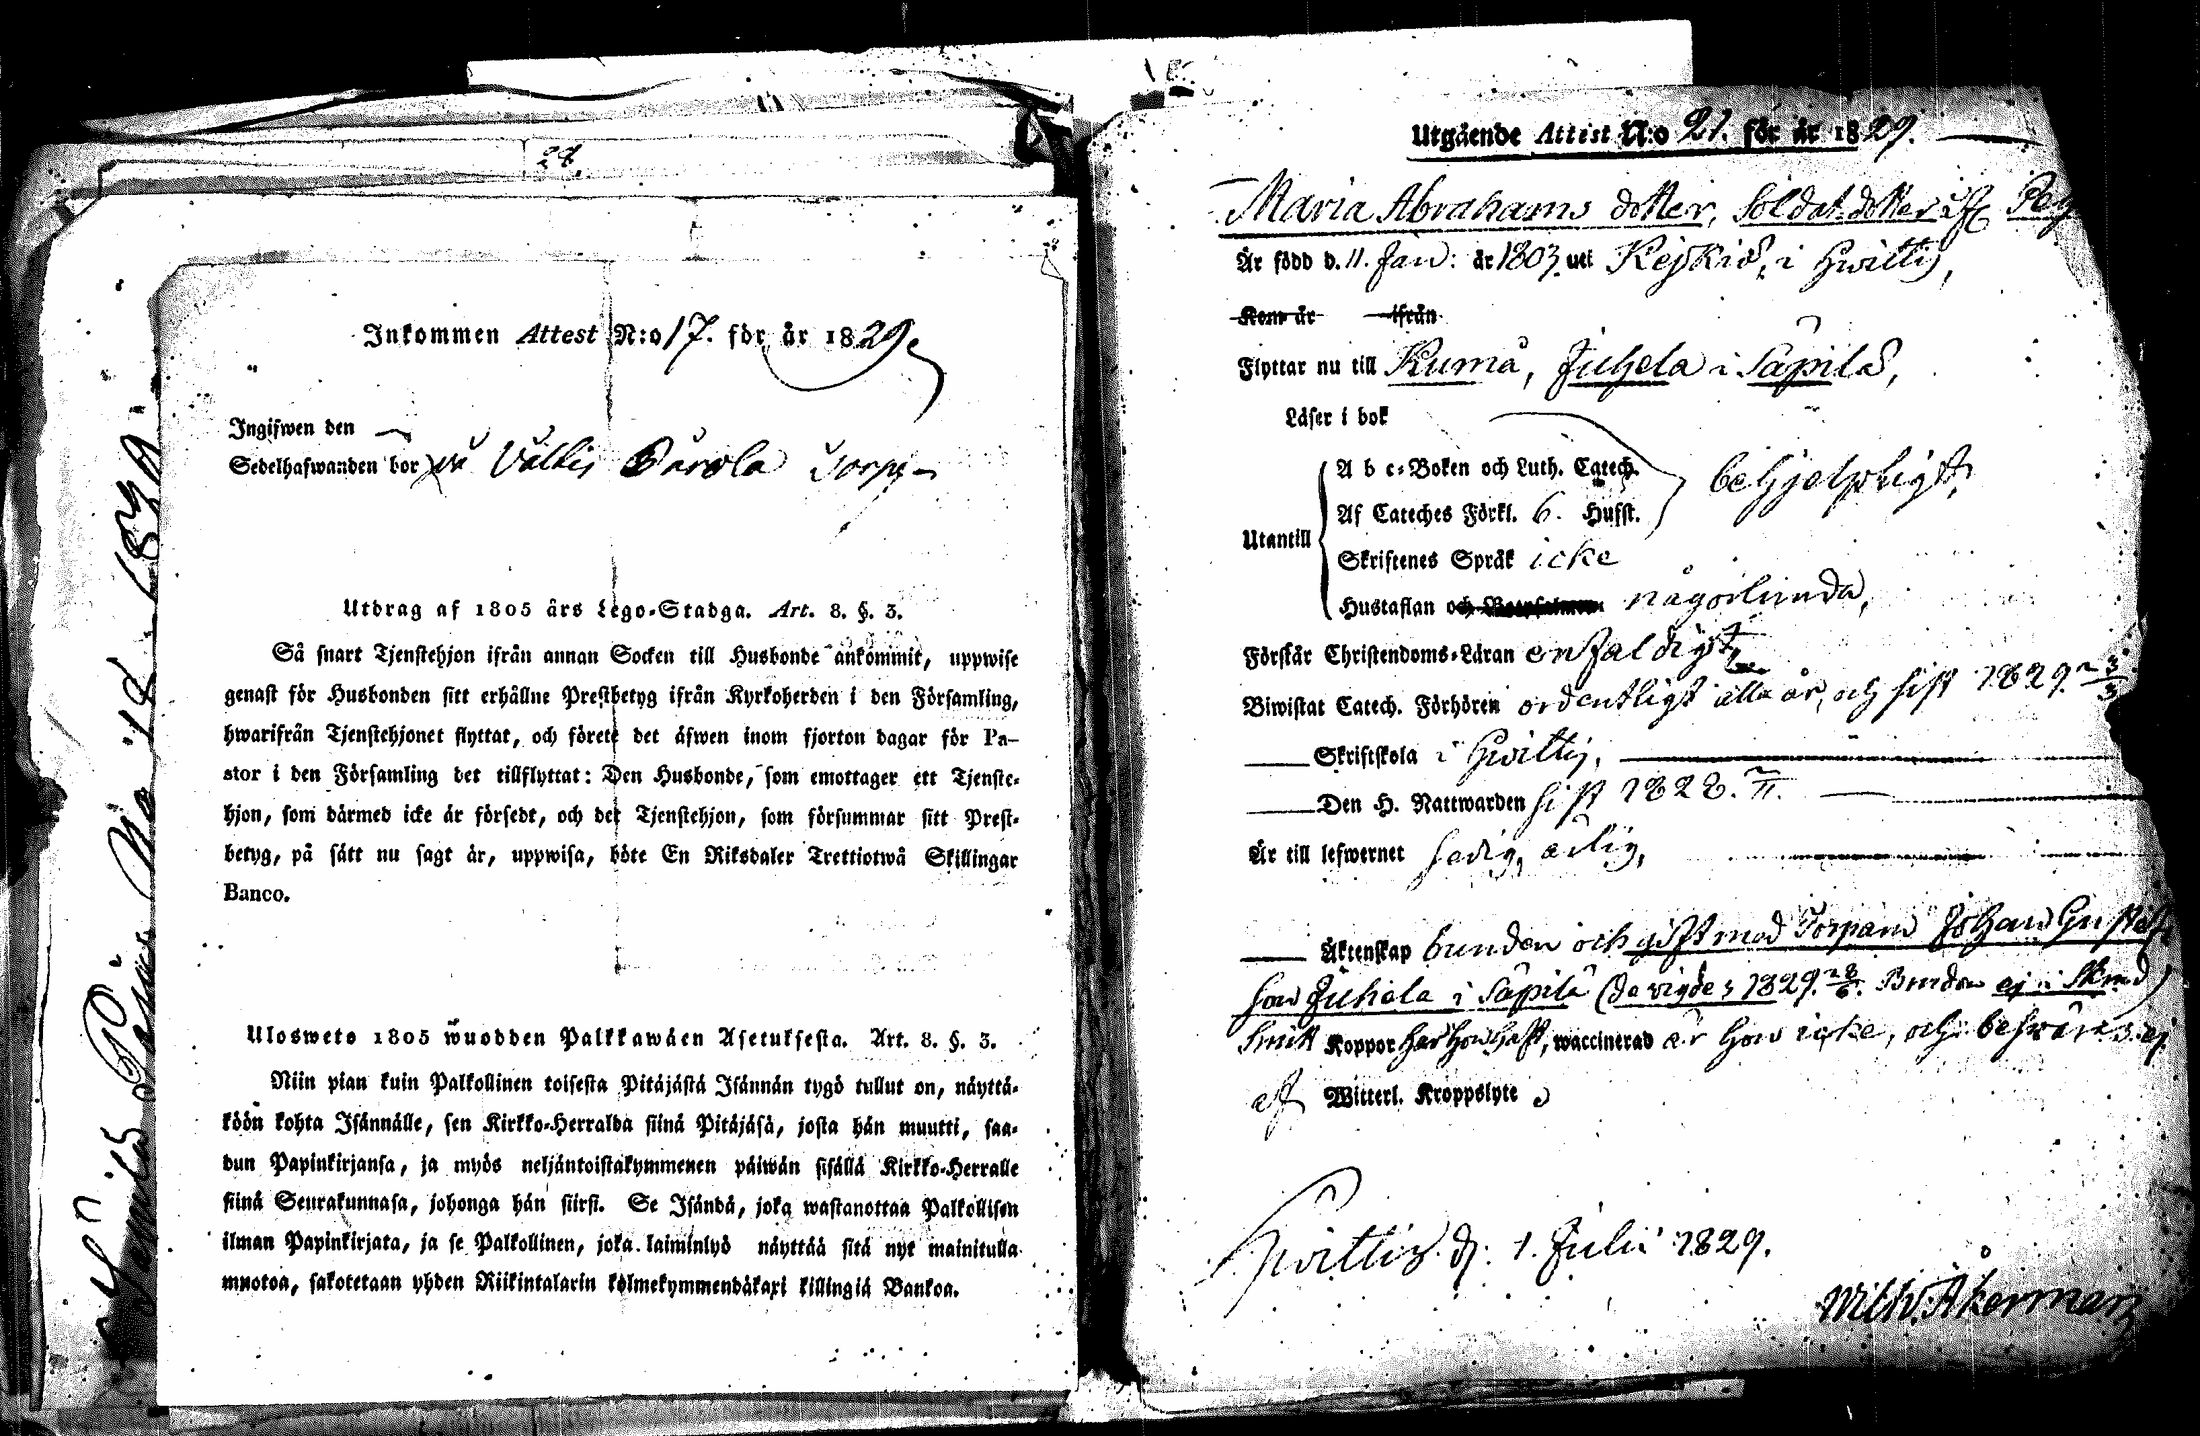 28.
Inkommen Attest N:o 17. för år 1829.
Ingifwen den
Sedelhafwanden bor på Vallis Torp
Utdrag af 1805 års Lego-Stadga. Art. 8. §. 3.
Så snart Tjenstehjon ifrån annan Socken till Husbonde ankommit, uppwise
genast för Husbonden sitt erhållne Prestbetyg ifrån Kyrkoherden i den Församling,
hwarifrån Tjenstehjonet flyttat, och förete det äfwen inom fjorton dagar för Pa-
stor i den Församling det tillflyttat: Den Husbonde, som emottager ett Tjenste-
hjon, som därmed icke är försedt, och det Tjenstehjon, som försummar sitt Prest-
betyg, på sätt nu sagt är, uppwisa, böte En Riksdaler Trettiotwå Skillingar
Banco.
Ulosweto 1805 wuodden Palkkawäen Asetuksesta. Art. 8. §. 3.
Niin pian kuin Palkollinen toisesta Pitäjästä Isännän tygö tullut on, näyttä-
köön kohta Isännälle, sen Kirkko-Herralda siinä Pitäjäsä, josta hän muutti, saa-
dun Papinkirjansa, ja myös neljäntoistakymmenen päiwän sisällä Kirkko-Herralle
siinä Seurakunnasa, johonga hän siirsi. Se Isändä, joka wastanottaa Palkollisen
ilman Papinkirjata, ja se Palkollinen, joka laiminlyö näyttää sitä nyt mainitulla
muotoa, sakotetaan yhden Riikintalarin kolmekymmendäkaxi killingiä Bankoa.
Utgående Attest N:o 21. för år 1829.
Maria Abrahams dotter, Soldat dotter
Är född d. 11. Jan: år 1803. uti Kejkiö, i Hwittis,
Kom år ifrån
Flyttar nu till Kumå, Juhela i Säpilä,
Läser i bok
A b c-Boken och Luth. Catech. behjelpligt,
Af Cateches Förkl. 6. Hufst.
Utantill
Skriftenes Språk icke
Hustaflan och någorlunda,
Förstår Christendoms-Läran enfaldigt,
Biwistat Catech. Förhören ordentligt alla år, och sist 1829. 3/3
Skriftskola i Hwittis,
Den H. Nattwarden sist 1828.
Är till lefwernet sedig, ärlig,
Äktenskap bunden och gift med Torparn Johan Gustafs
son Juhela i Säpilä (de vigdes 1829.
Koppor har hon haft, waccinerad är hon icke, och beswäras ej
af Witterl. Kroppslyte
Hwittis d: 1. Julii 1829.
Wilh. Åkerman